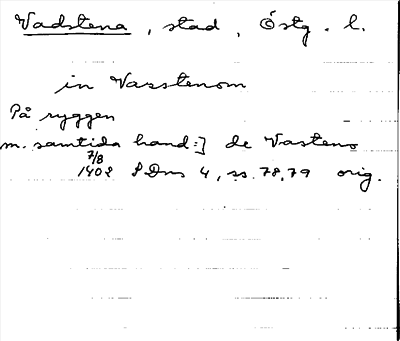 Vadstena, stad, Östg. l.
in Vasstenom
På ryggen
m. samtida hand:] de Vasteno
7/8
1402 SDns 4, ss. 78, 79 orig.